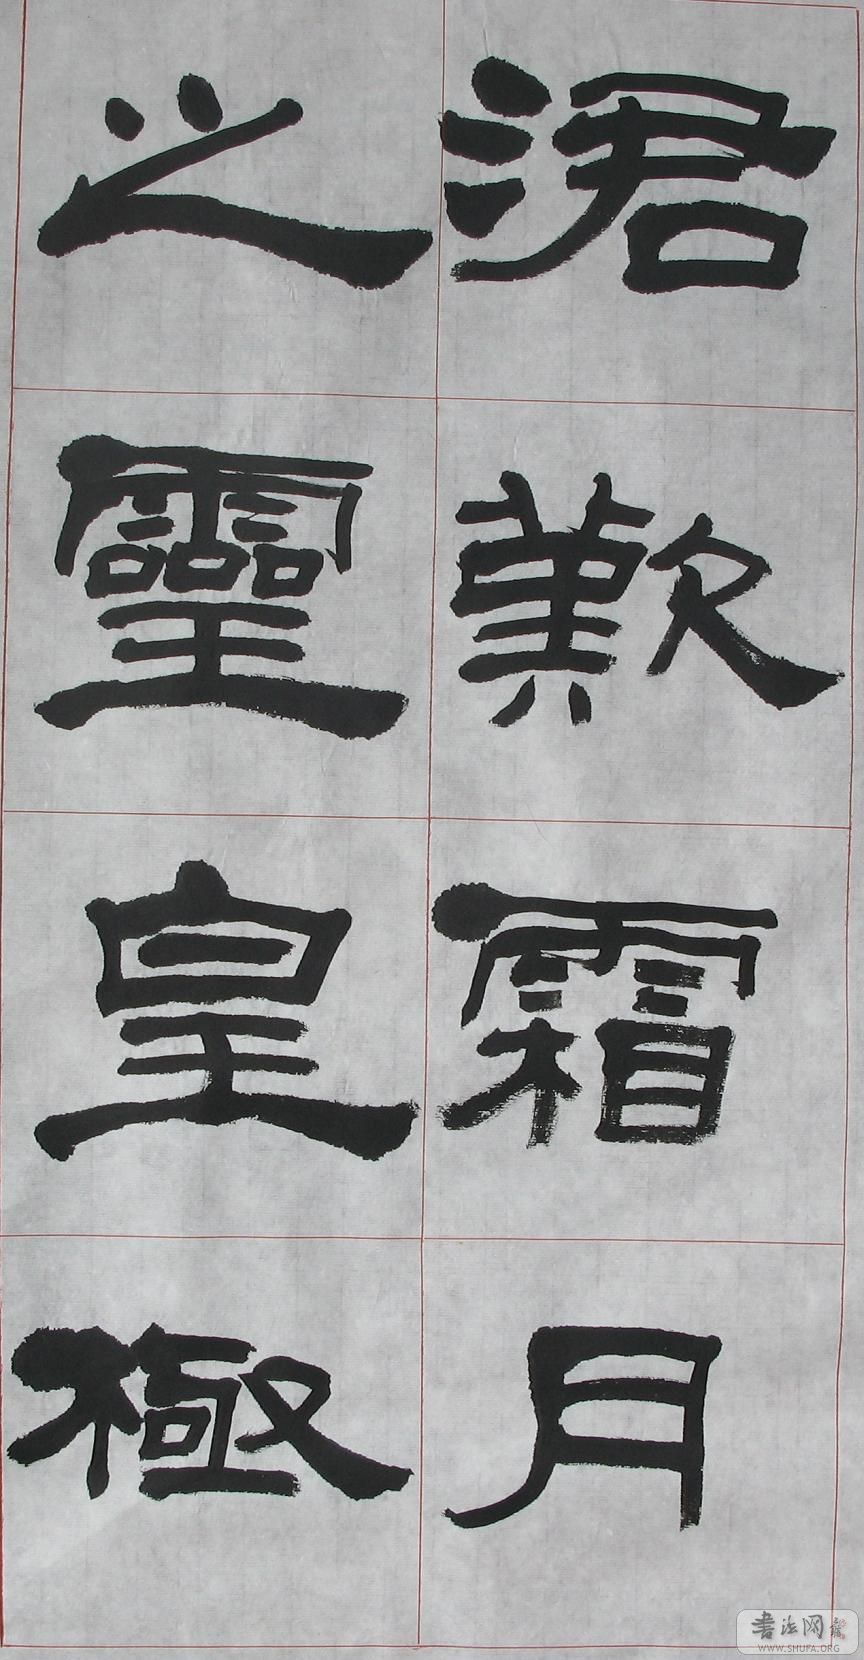 涒歎霜月
之靈皇極
书法网
WWW.SHUFA.ORG